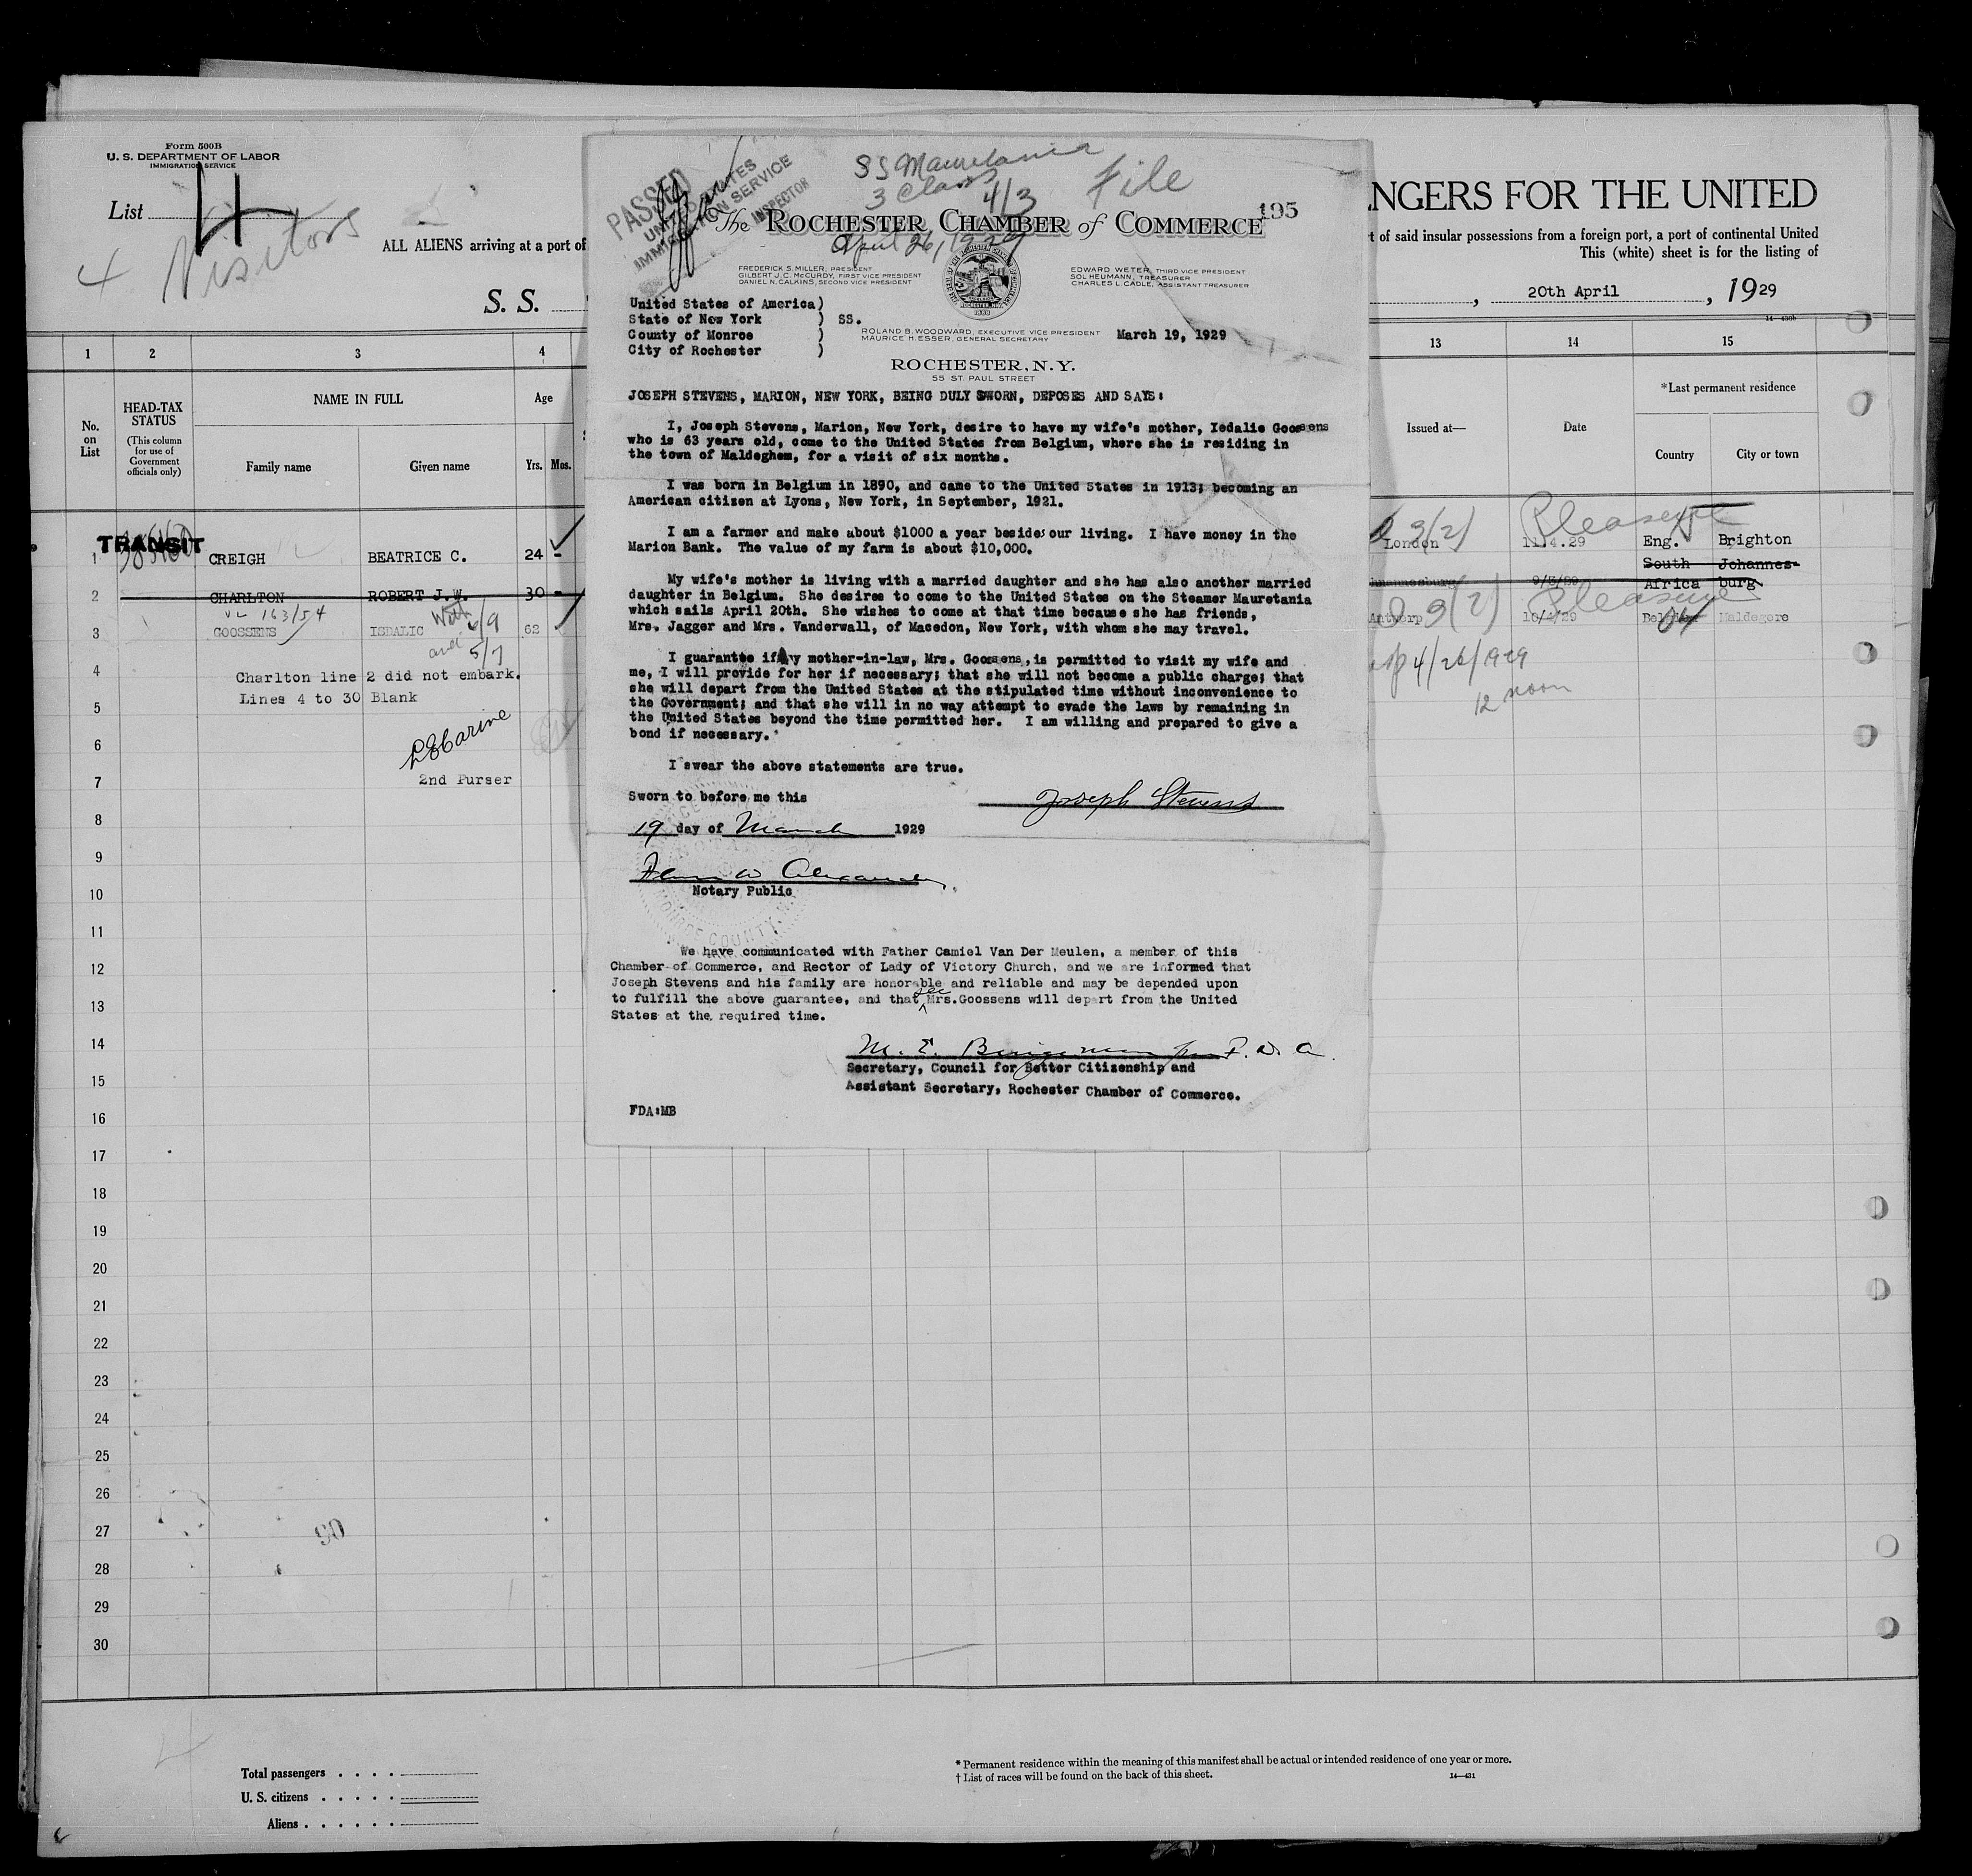 Form 500B
U. S. DEPARTMENT OF LABOR
IMMIGRATION SERVICE
List 4
4 Visitors
ALL ALIENS arriving at a port of
S. S.
NGERS FOR THE UNITED
t of said insular possessions from a foreign port, a port of continental United
This (white) sheet is for the listing of
, 20th April, 1929
14—430b
1 2 3 4
13 14 15
No. on List
HEAD-TAX STATUS
(This column for use of Government officials only)
NAME IN FULL
Family name Given name
Age
Yrs. Mos.
Issued at—
Date
*Last permanent residence
Country City or town
TRANSIT
1 CREIGH BEATRICE C. 24 -
London 3(2) 11.4.29 Pleasure Eng. Brighton
2 CHARLTON ROBERT J.W. 30 -
South Africa Johannes-burg
VL 163/54
3 GOOSSENS ISDALIC 62
With 6/9
and 5/7
Antwerp 3(2) 10/4/29 Pleasure Maldegere
4/26/1929
12 noon
4
Charlton line 2 did not embark.
Lines 4 to 30 Blank
5
6
7
2nd Purser
8
9
10
11
12
13
14
15
16
17
18
19
20
21
22
23
24
25
26
27
28
29
30
Total passengers
U. S. citizens
Aliens
* Permanent residence within the meaning of this manifest shall be actual or intended residence of one year or more.
† List of races will be found on the back of this sheet.
14—431
SS Mauretania
3 Class
4/3
File
PASSED
UNITED STATES
IMMIGRATION SERVICE
INSPECTOR
195
The ROCHESTER CHAMBER of COMMERCE
April 26, 1929
FREDERICK S. MILLER, PRESIDENT
GILBERT J. C. McCURDY, FIRST VICE PRESIDENT
DANIEL N. CALKINS, SECOND VICE PRESIDENT
EDWARD WETER, THIRD VICE PRESIDENT
SOL HEUMANN, TREASURER
CHARLES L. CADLE, ASSISTANT TREASURER
United States of America)
State of New York ) SS.
County of Monroe )
City of Rochester )
ROLAND B. WOODWARD, EXECUTIVE VICE PRESIDENT
MAURICE H. ESSER, GENERAL SECRETARY
March 19, 1929
ROCHESTER, N.Y.
55 ST. PAUL STREET
JOSEPH STEVENS, MARION, NEW YORK, BEING DULY SWORN, DEPOSES AND SAYS:
I, Joseph Stevens, Marion, New York, desire to have my wife's mother, Isdalie Goossens
who is 63 years old, come to the United States from Belgium, where she is residing in
the town of Maldeghem, for a visit of six months.
I was born in Belgium in 1890, and came to the United States in 1913; becoming an
American citizen at Lyons, New York, in September, 1921.
I am a farmer and make about $1000 a year besides our living. I have money in the
Marion Bank. The value of my farm is about $10,000.
My wife's mother is living with a married daughter and she has also another married
daughter in Belgium. She desires to come to the United States on the Steamer Mauretania
which sails April 20th. She wishes to come at that time because she has friends,
Mrs. Jagger and Mrs. Vanderwall, of Macedon, New York, with whom she may travel.
I guarantee if my mother-in-law, Mrs. Goossens, is permitted to visit my wife and
me, I will provide for her if necessary; that she will not become a public charge; that
she will depart from the United States at the stipulated time without inconvenience to
the Government; and that she will in no way attempt to evade the laws by remaining in
the United States beyond the time permitted her. I am willing and prepared to give a
bond if necessary.
I swear the above statements are true.
Sworn to before me this
Joseph Stevens
19 day of March 1929
Notary Public
We have communicated with Father Camiel Van Der Meulen, a member of this
Chamber of Commerce, and Rector of Lady of Victory Church, and we are informed that
Joseph Stevens and his family are honorable and reliable and may be depended upon
to fulfill the above guarantee, and that see Mrs. Goossens will depart from the United
States at the required time.
Secretary, Council for Better Citizenship and
Assistant Secretary, Rochester Chamber of Commerce.
FDA:MB